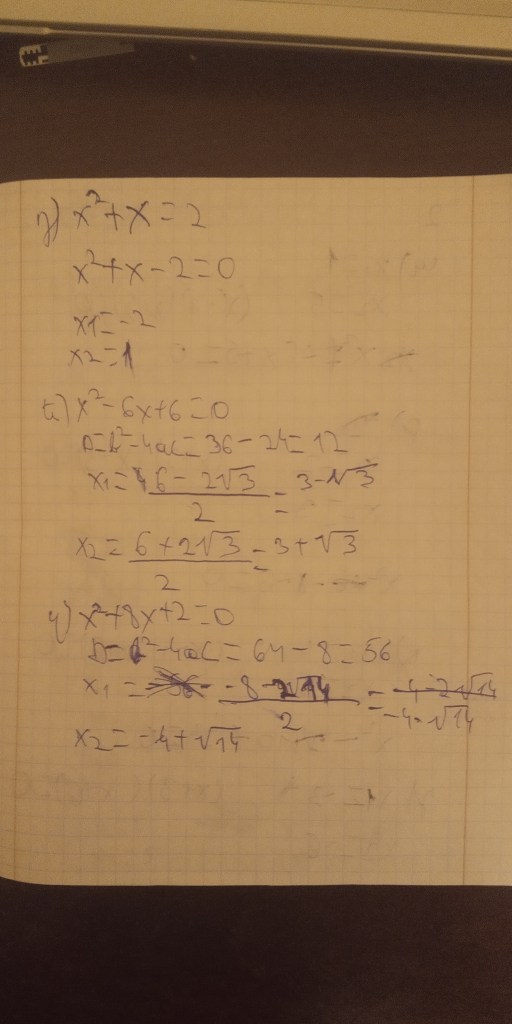 з) x²+x=2
x²+x-2=0
x1=-2
x2=1
и) x²-6x+6=0
D=b²-4ac=36-24=12
x1=6-2√3/2=3-√3
x2=6+2√3/2=3+√3
x²+8x+2=0
D=b²-4ac=64-8=56
x1=-8-2√14/2=-4-√14
x2=-4+√14